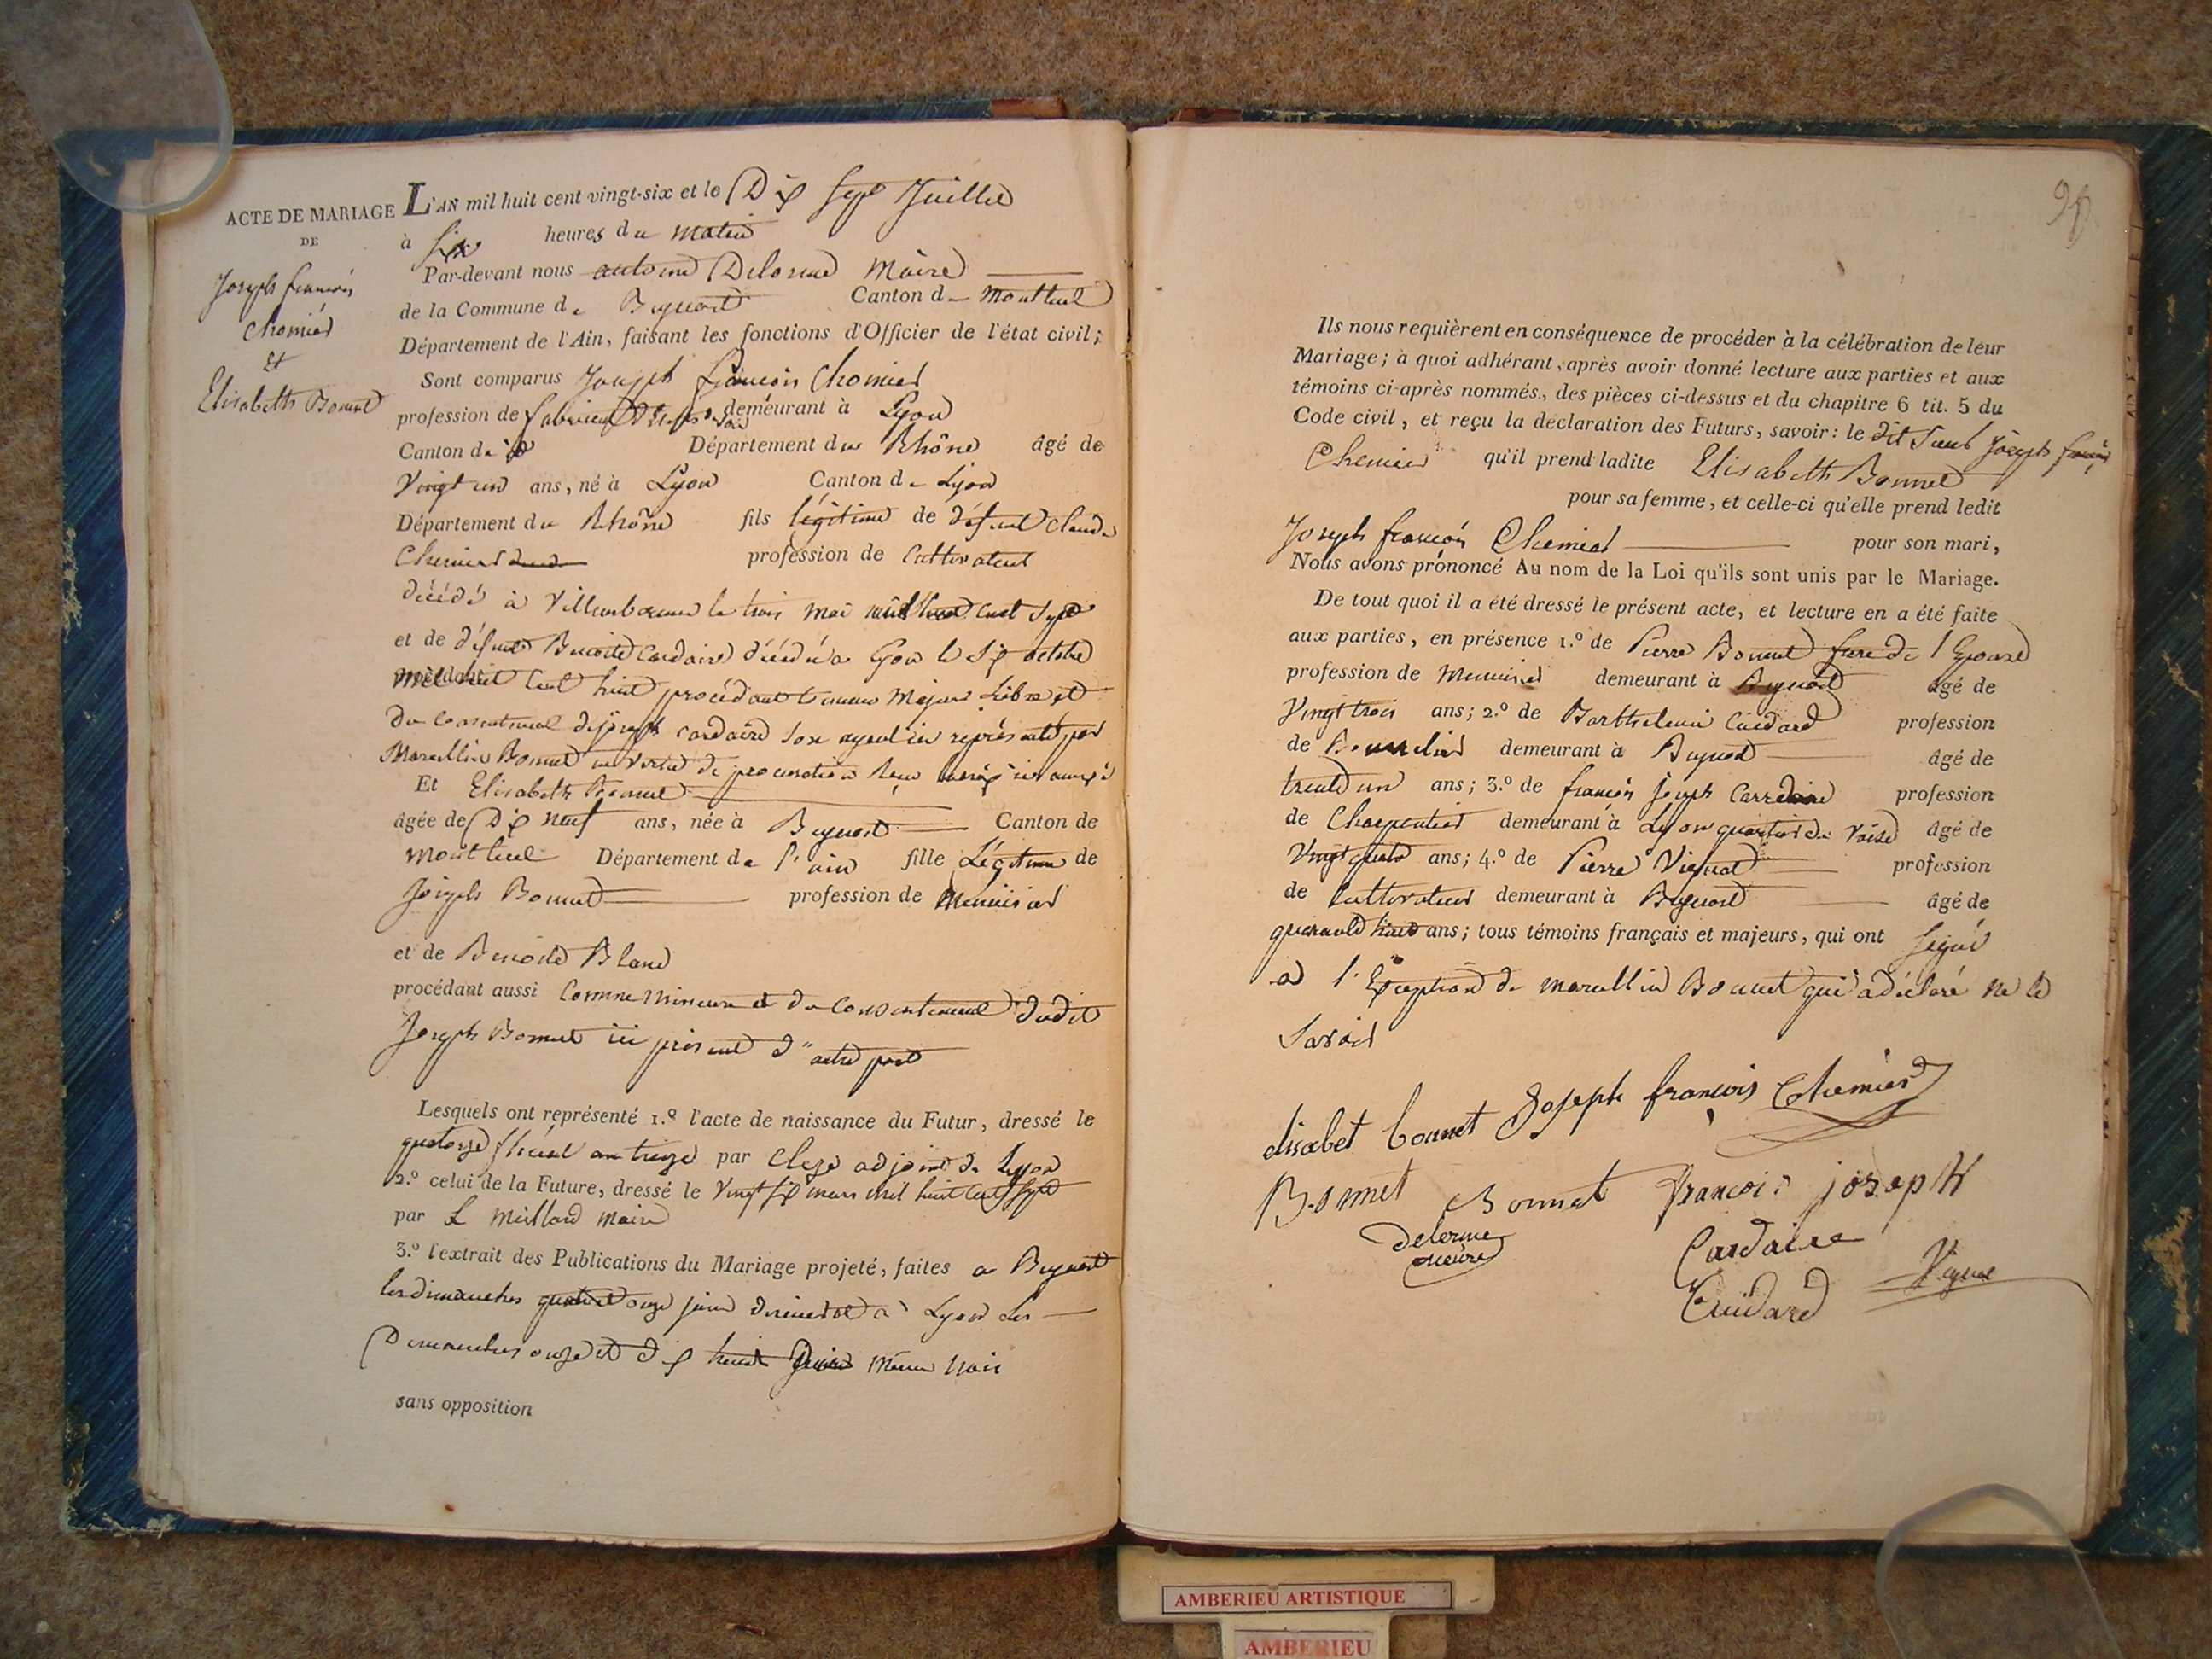 ACTE DE MARIAGE
DE
Joseph françois
Chomier
Et
Elisabeth Bonnet
L'AN mil huit cent vingt-six et le Dix Sept Juillet
à Six heures du matin
Par-devant nous antoine Delorme Maire
de la Commune de Beynost Canton de Montluel
Département de l'Ain, faisant les fonctions d'Officier de l'état civil;
Sont comparus Joseph françois Chomier
profession de fabricant demeurant à Lyon
Canton de Département du Rhône âgé de
Vingt un ans, né à Lyon Canton de Lyon
Département du Rhône fils légitime de défunt Claude
Chemier profession de Cultivateur
décédé à Villeurbanne le trois Mai mil huit Cent Sept
et de défunte Benoite Cardaire décédée a Lyon le Six octobre
mil huit Cent huit procédant comme Majeur Libre et
du consentement de joseph Cardaire Son ayeul ici représenté par
Marcellin Bonnet en vertu de procuration
Et Elisabeth Bonnet
âgée de Dix Neuf ans, née à Beynost Canton de
Montluel Département de l'ain fille Légitime de
Joseph Bonnet profession de Menuisier
et de Benoite Bland
procédant aussi Comme Mineure et du Consentement dudit
Joseph Bonnet ici présent d'autre part
Lesquels ont représenté 1.º l'acte de naissance du Futur, dressé le
quatorze floréal an treize par adjoint de Lyon
2.º celui de la Future, dressé le Vingt Six mars mil huit Cent Sept
par Maire
3.º l'extrait des Publications du Mariage projeté, faites a Beynost
les dimanches onze juin a Lyon les
Dimanches onze et dix huit Juin même mois
sans opposition
Ils nous requièrent en conséquence de procéder à la célébration de leur
Mariage; à quoi adhérant, après avoir donné lecture aux parties et aux
témoins ci-après nommés, des pièces ci-dessus et du chapitre 6 tit. 5 du
Code civil, et reçu la déclaration des Futurs, savoir: le dit Sieur Joseph françois
Chemier qu'il prend ladite Elisabeth Bonnet
pour sa femme, et celle-ci qu'elle prend ledit
Joseph françois Chemier pour son mari,
Nous avons prononcé Au nom de la Loi qu'ils sont unis par le Mariage.
De tout quoi il a été dressé le présent acte, et lecture en a été faite
aux parties, en présence 1.º de Pierre Bonnet frere de l'Epouse
profession de Menuisier demeurant à Beynost âgé de
Vingt trois ans; 2.º de Barthelemi Cuidard profession
de Bourrelier demeurant à Beynost âgé de
trente un ans; 3.º de françois Joseph Cardaire profession
de Charpentier demeurant à Lyon quartier de Vaise âgé de
Vingt quatre ans; 4.º de Pierre Vignat profession
de Cultivateur demeurant à Beynost âgé de
quarante huit ans; tous témoins français et majeurs, qui ont Signé
a l'Exception de Marcellin Bonnet qui a déclaré ne le
Savoir
elisabet bonnet Joseph françois Chemier
Bonnet Bonnet françois joseph
Cardaire
delorme
maire
Cuidard
Vignat
AMBERIEU ARTISTIQUE
AMBERIEU